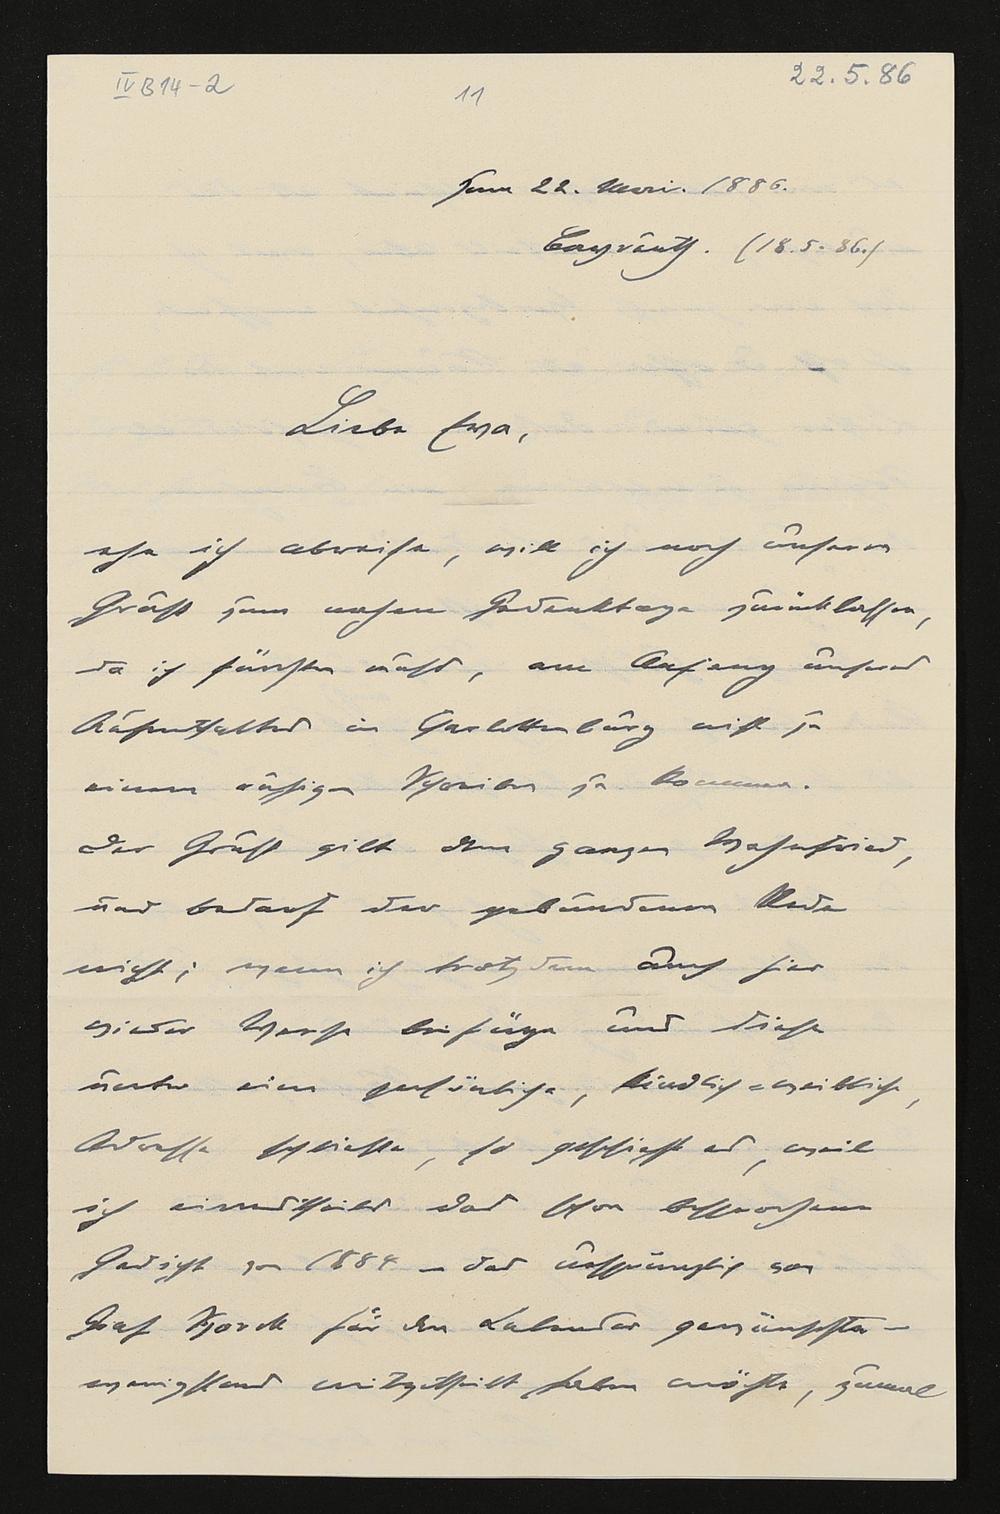 IV B 14 - 2
11
22.5.86
Zum 22. Mai. 1886.
Bayreuth. (18.5.86.)
Liebe Eva,
ehe ich abreise, will ich noch unseren
Gruß zum nahen Gedenktage zurücklassen,
da ich fürchten muß, am Anfang unseres
Aufenthaltes in Charlottenburg nicht zu
einem ruhigen Schreiben zu kommen.
Der Gruß gilt dem ganzen Wahnfried,
und bedarf der gebundenen Rede
nicht; wenn ich trotzdem auch hier
wieder Verse beifüge und diese
unter eine persönliche, kindlich-weibliche,
Adresse schliesse, so geschieht es, weil
ich einestheils das schon besprochene
Gedicht von 1884 – das ursprünglich von
Graf Yorck für den Kalender gewünschte –
wenigstens mitgetheilt haben möchte, zumal